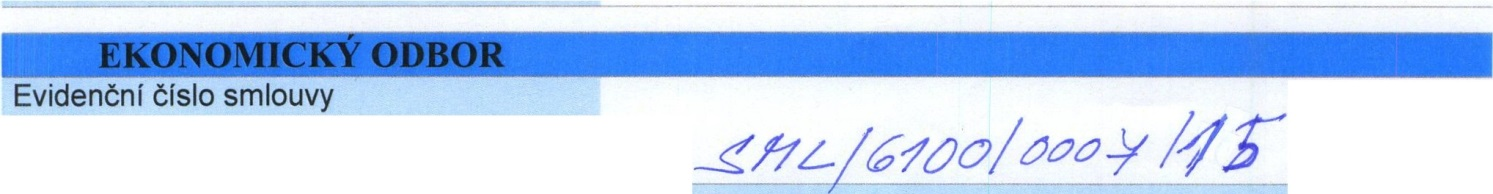 EKONOMICKÝ ODBOR
Evidenční číslo smlouvy
SML/6100/0007/15